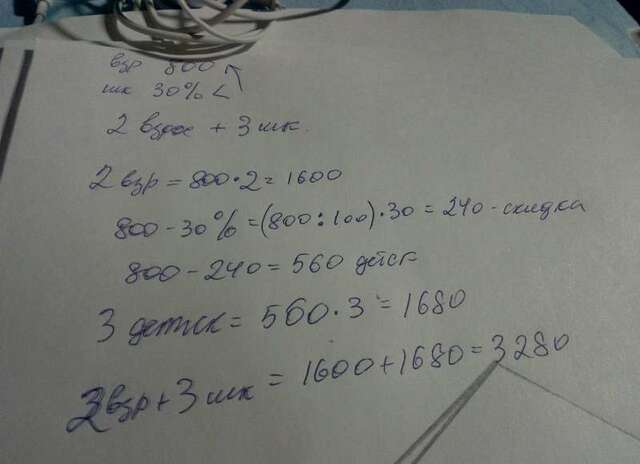 взр 800
шк 30% <
2 взрос + 3 шк.
2 взр = 800 · 2 = 1600
800 - 30% = (800 : 100) · 30 = 240 - скидка
800 - 240 = 560 детск
3 детск = 560 · 3 = 1680
2 взр + 3 шк = 1600 + 1680 = 3280